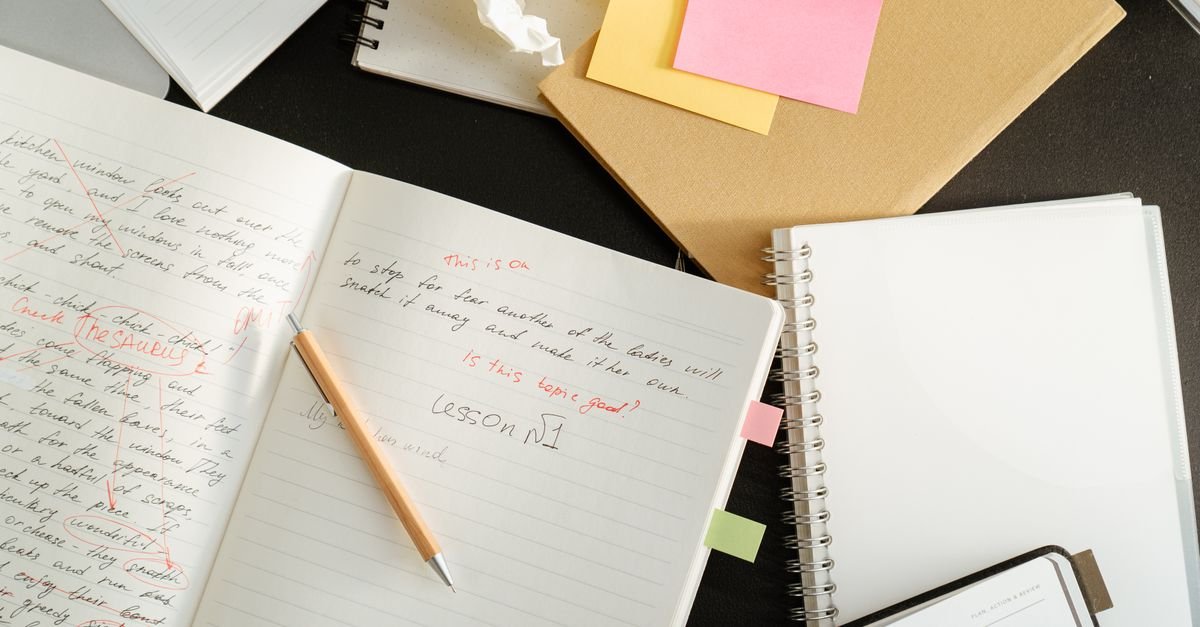 kitchen window looks out over the
yard, and I love nothing more
to open my windows in fall, once
remove the screens from the
and shout.
chick-chick-chick-chick!
Check Thesaurus
OMIT
come flapping and
the same time, their feet
the fallen leaves, in a
toward the window. They
for the appearance
or a handful of scraps,
up the piece. If
wonderful
or cheese - they snatch
beaks and run
enjoy their
greedy
This is OK
to stop for fear another of the ladies will
snatch it away and make it her own.
Is this topic good?
Lesson №1
My
PLAN, ACTION & REVIEW